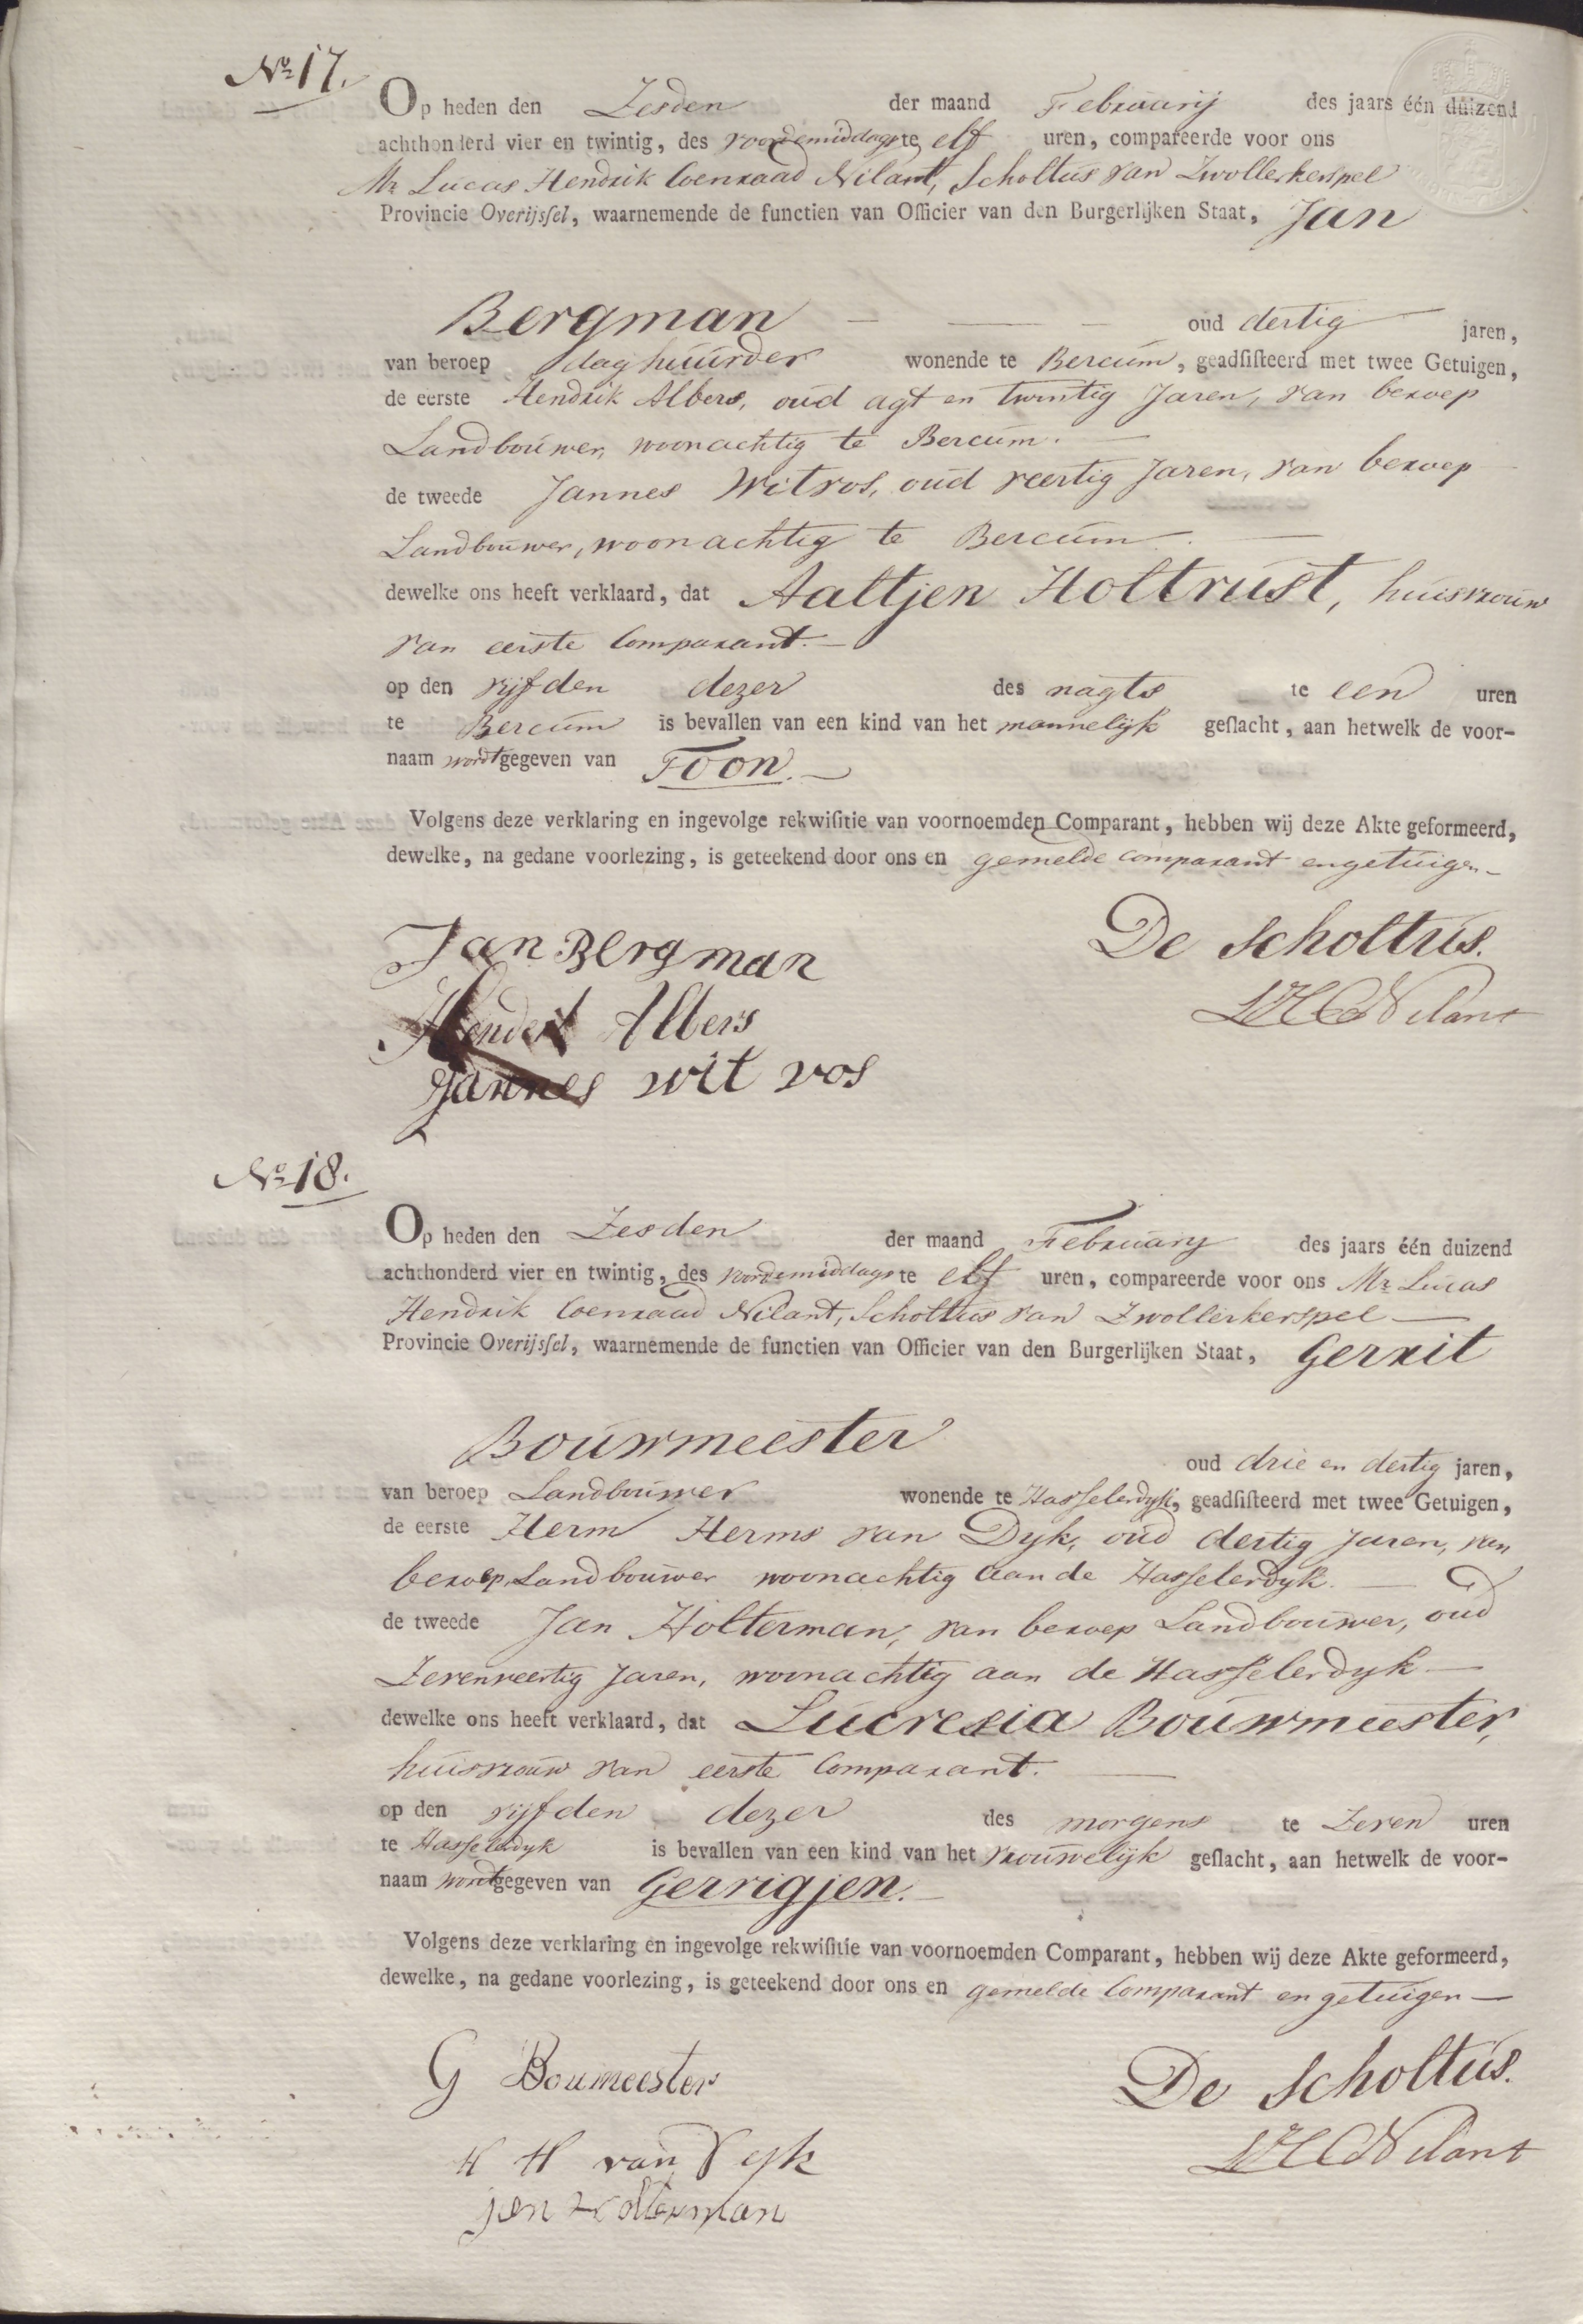 No 17.
Op heden den Zesden der maand Februarij des jaars één duizend
achthonderd vier en twintig, des voordemiddags te elf uren, compareerde voor ons
Mr Lucas Hendrik Coenraad Nilant, Scholtus van Zwollerkerspel
Provincie Overijssel, waarnemende de functien van Officier van den Burgerlijken Staat, Jan
Bergman oud dertig jaren,
van beroep daghuurder wonende te Bercum, geadsisteerd met twee Getuigen,
de eerste Hendrik Albers, oud agt en twintig Jaren, van beroep
Landbouwer, woonachtig te Bercum.
de tweede Jannes Witvos, oud veertig Jaren, van beroep
Landbouwer, woonachtig te Bercum.
dewelke ons heeft verklaard, dat Aaltjen Holtrust, huisvrouw
van eerste Comparant.
op den vijfden dezer des nagts te een uren
te Bercum is bevallen van een kind van het mannelijk geslacht, aan hetwelk de voor-
naam wordt gegeven van Toon.
Volgens deze verklaring en ingevolge rekwisitie van voornoemden Comparant, hebben wij deze Akte geformeerd,
dewelke, na gedane voorlezing, is geteekend door ons en gemelde comparant en getuigen
Jan Bergman
De Scholtus.
Hendrik Albers
LHC Nilant
Jannes wit vos
No 18.
Op heden den Zesden der maand February des jaars één duizend
achthonderd vier en twintig, des voordemiddags te elf uren, compareerde voor ons Mr Lucas
Hendrik Coenraad Nilant, Scholtus van Zwollerkerspel
Provincie Overijssel, waarnemende de functien van Officier van den Burgerlijken Staat, Gerrit
Bouwmeester
oud drie en dertig jaren,
van beroep Landbouwer wonende te Hasselerdyk, geadsisteerd met twee Getuigen,
de eerste Herm Herms van Dyk, oud dertig Jaren, van
beroep Landbouwer woonachtig aan de Hasselerdyk.
de tweede Jan Holterman, van beroep Landbouwer, oud
Zevenveertig Jaren, woonachtig aan de Hasselerdyk
dewelke ons heeft verklaard, dat Lucresia Bouwmeester,
huisvrouw van eerste Comparant.
op den vijfden dezer des morgens te Zeven uren
te Hasselerdyk is bevallen van een kind van het vrouwelijk geslacht, aan hetwelk de voor-
naam wordt gegeven van Gerrigjen.
Volgens deze verklaring en ingevolge rekwisitie van voornoemden Comparant, hebben wij deze Akte geformeerd,
dewelke, na gedane voorlezing, is geteekend door ons en gemelde Comparant en getuigen
G Boumeester
De Scholtus.
H H van Dyk
LHC Nilant
jan Holterman